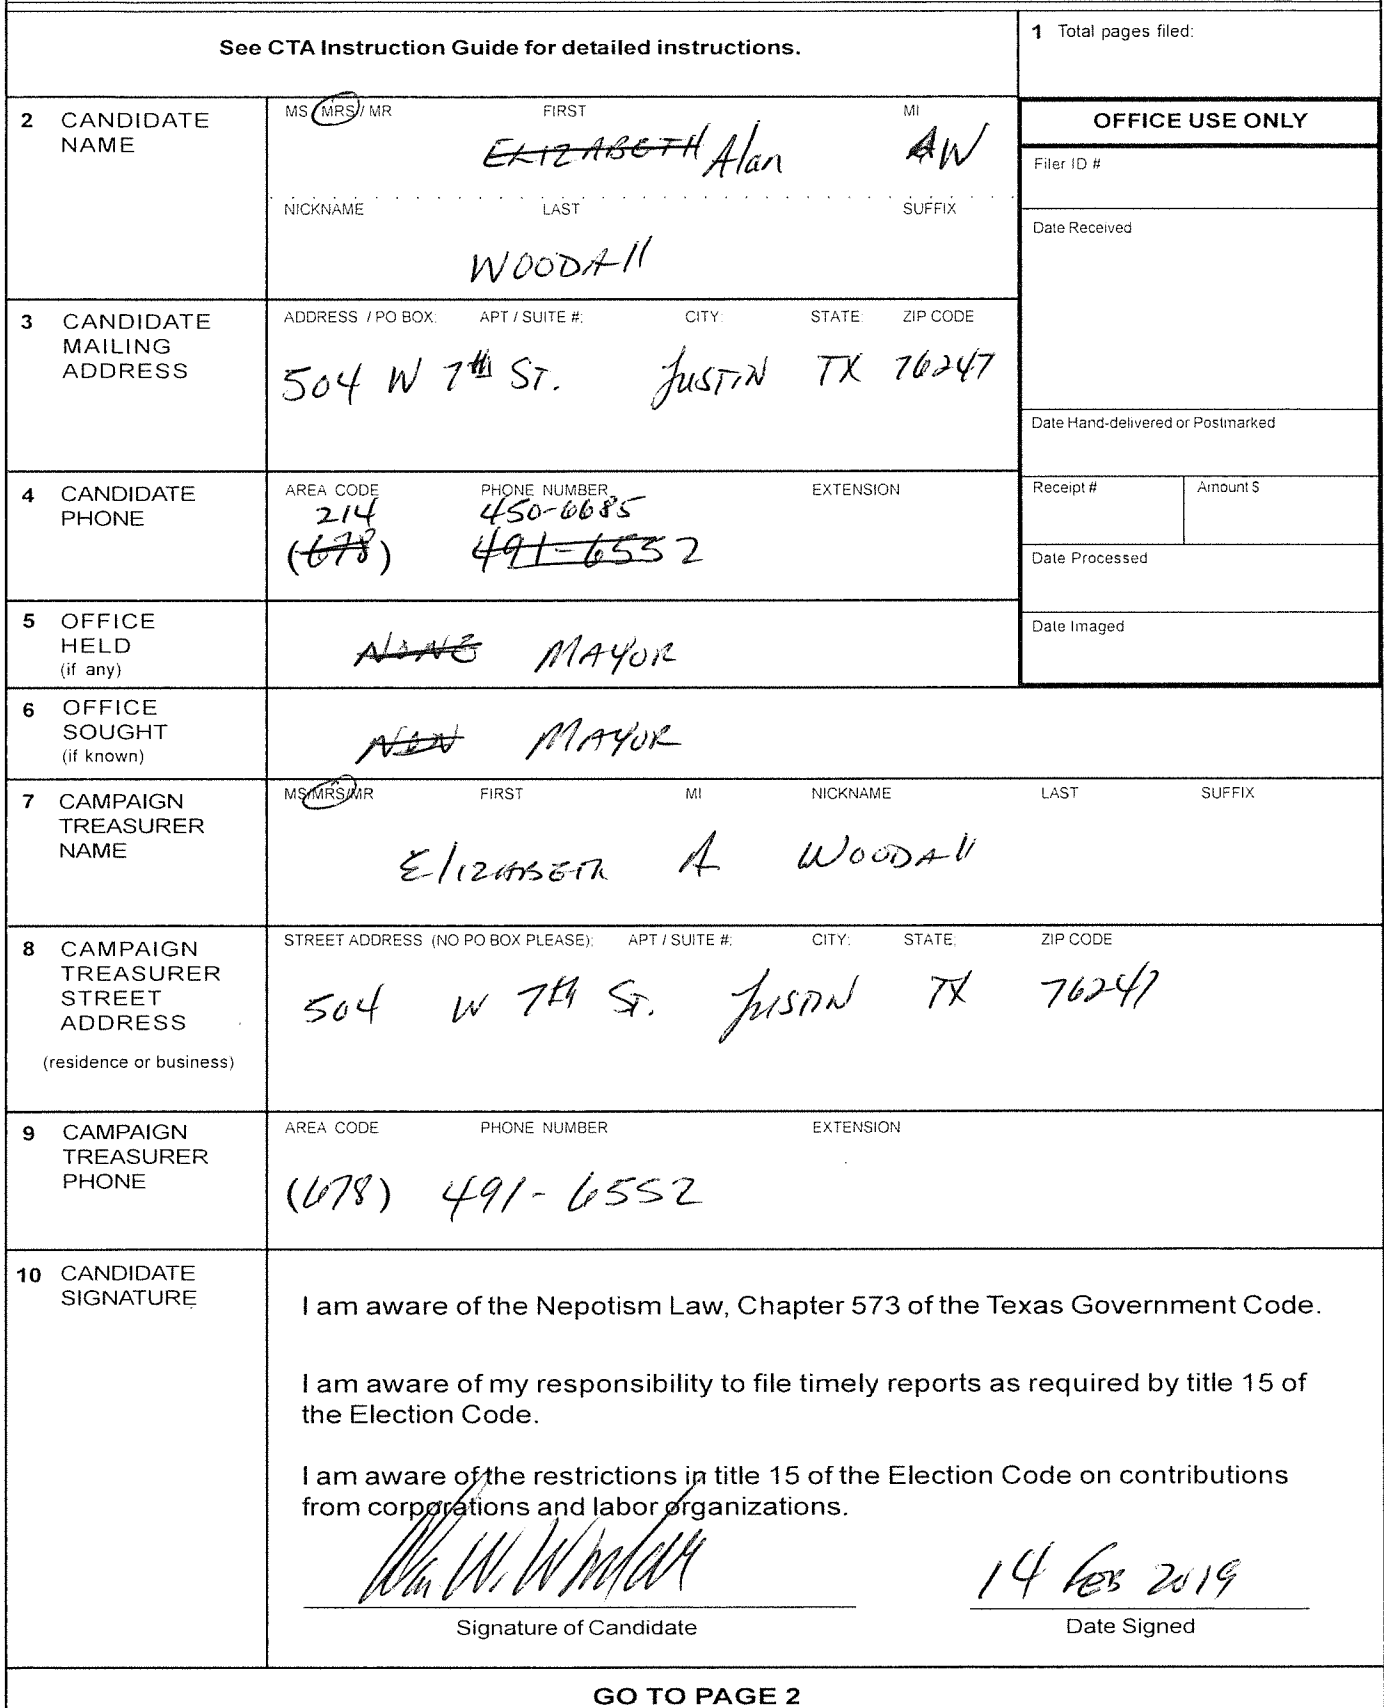 See CTA Instruction Guide for detailed instructions.
1 Total pages filed:
2 CANDIDATE NAME
MS / MRS / MR FIRST MI
ELIZABETH Alan A W
NICKNAME LAST SUFFIX
WOODAll
OFFICE USE ONLY
Filer ID #
Date Received
Date Hand-delivered or Postmarked
Receipt # Amount $
Date Processed
Date Imaged
3 CANDIDATE MAILING ADDRESS
ADDRESS / PO BOX; APT / SUITE #; CITY; STATE; ZIP CODE
504 W 7th ST. JUSTIN TX 76247
4 CANDIDATE PHONE
AREA CODE PHONE NUMBER EXTENSION
214 450-6685
(678) 491-6552
5 OFFICE HELD (if any)
NONE MAYOR
6 OFFICE SOUGHT (if known)
NON MAYOR
7 CAMPAIGN TREASURER NAME
MS/MRS/MR FIRST MI NICKNAME LAST SUFFIX
ElIZABETH A WOODAll
8 CAMPAIGN TREASURER STREET ADDRESS
(residence or business)
STREET ADDRESS (NO PO BOX PLEASE); APT / SUITE #; CITY; STATE; ZIP CODE
504 W 7th ST. JUSTIN TX 76247
9 CAMPAIGN TREASURER PHONE
AREA CODE PHONE NUMBER EXTENSION
(678) 491-6552
10 CANDIDATE SIGNATURE
I am aware of the Nepotism Law, Chapter 573 of the Texas Government Code.
I am aware of my responsibility to file timely reports as required by title 15 of
the Election Code.
I am aware of the restrictions in title 15 of the Election Code on contributions
from corporations and labor organizations.
Alan W. Woodall 14 FEB 2019
Signature of Candidate Date Signed
GO TO PAGE 2